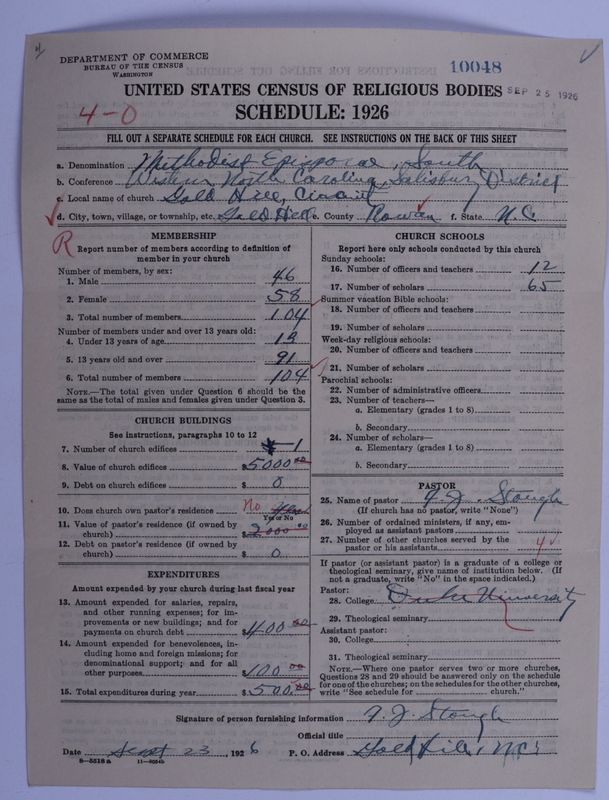 DEPARTMENT OF COMMERCE
BUREAU OF THE CENSUS
WASHINGTON
10048
UNITED STATES CENSUS OF RELIGIOUS BODIES SEP 25 1926
4-0 SCHEDULE: 1926
FILL OUT A SEPARATE SCHEDULE FOR EACH CHURCH. SEE INSTRUCTIONS ON THE BACK OF THIS SHEET
a. Denomination Methodist Episcopal, South
b. Conference Western North Carolina, Salisbury District
c. Local name of church Gold Hill, Circuit
d. City, town, village, or township, etc. Gold Hill e. County Rowan f. State N.C
R
MEMBERSHIP
Report number of members according to definition of
member in your church
Number of members, by sex:
1. Male 46
2. Female 58
3. Total number of members 104
Number of members under and over 13 years old:
4. Under 13 years of age 13
5. 13 years old and over 91
6. Total number of members 104
NOTE.—The total given under Question 6 should be
same as the total of males and females given under Question 3.
CHURCH BUILDINGS
See instructions, paragraphs 10 to 12
7. Number of church edifices 1
8. Value of church edifices $5000.00
9. Debt on church edifices $ 0
10. Does church own pastor's residence No
Yes or No
11. Value of pastor's residence (if owned by
church) $ 2000.00
12. Debt on pastor's residence (if owned by
church) $ 0
EXPENDITURES
Amount expended by your church during last fiscal year
13. Amount expended for salaries, repairs,
and other running expenses; for im-
provements or new buildings; and for
payments on church debt $400.00
14. Amount expended for benevolences, in-
cluding home and foreign missions; for
denominational support; and for all
other purposes $100.00
15. Total expenditures during year $500.00
CHURCH SCHOOLS
Report here only schools conducted by this church
Sunday schools:
16. Number of officers and teachers 12
17. Number of scholars 65
Summer vacation Bible schools:
18. Number of officers and teachers
19. Number of scholars
Week-day religious schools:
20. Number of officers and teachers
21. Number of scholars
Parochial schools:
22. Number of administrative officers
23. Number of teachers—
a. Elementary (grades 1 to 8)
b. Secondary
24. Number of scholars—
a. Elementary (grades 1 to 8)
b. Secondary
PASTOR
25. Name of pastor F. J. Stough
(If church has no pastor, write "None")
26. Number of ordained ministers, if any, em-
ployed as assistant pastors
27. Number of other churches served by the
pastor or his assistants 4
If pastor (or assistant pastor) is a graduate of a college or
theological seminary, give name of institution below. (If
not a graduate, write "No" in the space indicated.)
Pastor:
28. College Duke University
29. Theological seminary
Assistant pastor:
30. College
31. Theological seminary
NOTE.—Where one pastor serves two or more churches,
Questions 28 and 29 should be answered only on the schedule
for one of the churches; on the schedules for the other churches,
write "See schedule for church."
Signature of person furnishing information F. J. Stough
Official title
Date Sept 23, 1926 P. O. Address Gold Hill, N.C.
8-5318a